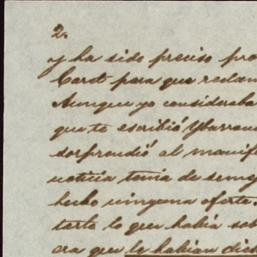 2.
y ha sido preciso pro
Carst para que reclam
Aunque yo consideraba
que te escribió Ybarra
sorprendió al manif
noticia tenia de semej
hecho ninguna oferta.
tarte lo que habia sob
era que le habian dich